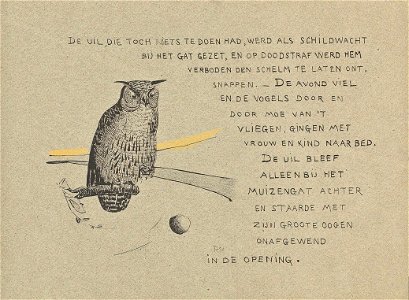 DE UIL DIE TOCH NIETS TE DOEN HAD, WERD ALS SCHILDWACHT
BIJ HET GAT GEZET, EN OP DOODSTRAF WERD HEM
VERBODEN DEN SCHELM TE LATEN ONT,
SNAPPEN. — DE AVOND VIEL
EN DE VOGELS DOOR EN
DOOR MOE VAN 'T
VLIEGEN, GINGEN MET
VROUW EN KIND NAAR BED.
DE UIL BLEEF
ALLEEN BIJ HET
MUIZENGAT ACHTER
EN STAARDE MET
ZIJN GROOTE OOGEN
ONAFGEWEND
IN DE OPENING.